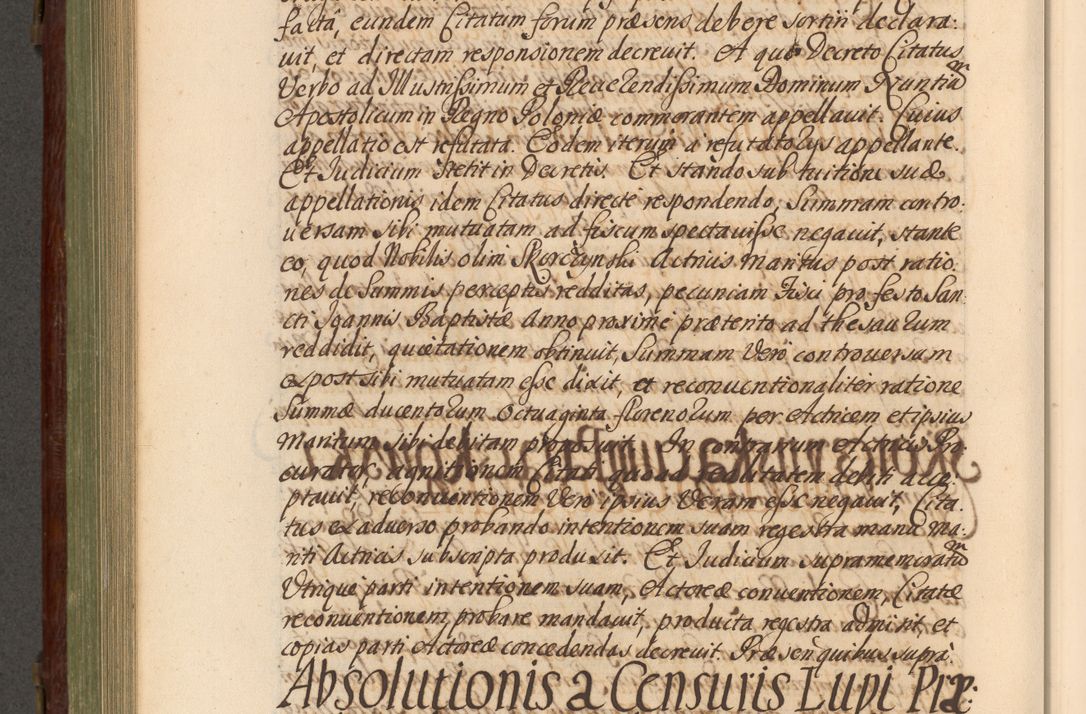 factá, eundem Citatum forum præsens debere sortiri declara:
uit, et directam responsionem decreuit. A quo Decreto Citatus
Verbo ad Illustrissimum et Reuerendissimum Dominum Nuntium
Apostolicum in Regno Poloniæ commorantem appellauit. Cuius
appellatio est refutata. Eodem iterum a refutatorijs appellante.
Et Judicium stetit in Decretis. Et stando sub tuitione suæ
appellationis idem Citatus directe respondendo, Summam contro:
uersam sibi mutuatam ad fiscum spectauisse negauit, stante
eo, quod Nobilis olim Skorczynski Actricis maritus post ratio
nes de summis perceptis redditas, pecuniam Fisci pro festo San
cti Joannis Baptistæ Anno proximè præterito ad thesaurum
reddidit, quietationem obtinuit, Summam Verò controuersam
ex post sibi mutuatam esse dixit, et reconuentionaliter ratione
Summæ ducentorum octuaginta florenorum per Actricem et ipsius
Maritum sibi debitam proposuit. In contrarium Actricis Pro
curator, agnitionem Citati quoad realitatem debiti acce
ptauit, reconuentionem Verò ipsius Veram esse negauit, Cita.
tus ex aduerso probando intentionem suam regestra manu ma:
riti Actricis subscripta produxit. Et Judicium supramemoratum
Vtrique parti intentionem suam, Actoreæ conuentionem, Citatæ
reconuentionem probare mandauit, producta regestra admisit, et
copias parti Actoreæ concedendas decreuit. Præsen quibus suprà.
Absolutionis a Censuris Lupi Præ: